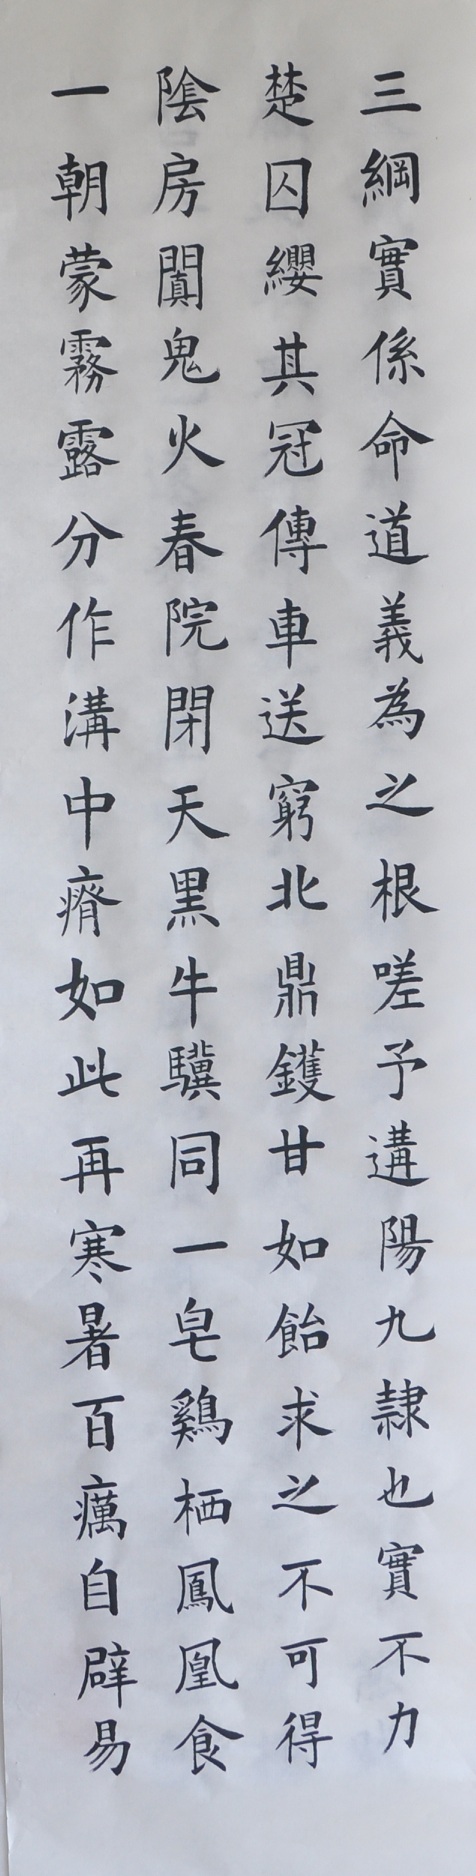 三綱實係命道義為之根嗟予遘陽九隷也實不力
楚囚纓其冠傳車送窮北鼎鑊甘如飴求之不可得
陰房闐鬼火春院閉天黑牛驥同一皂鷄栖鳳凰食
一朝蒙霧露分作溝中瘠如此再寒暑百癘自辟易